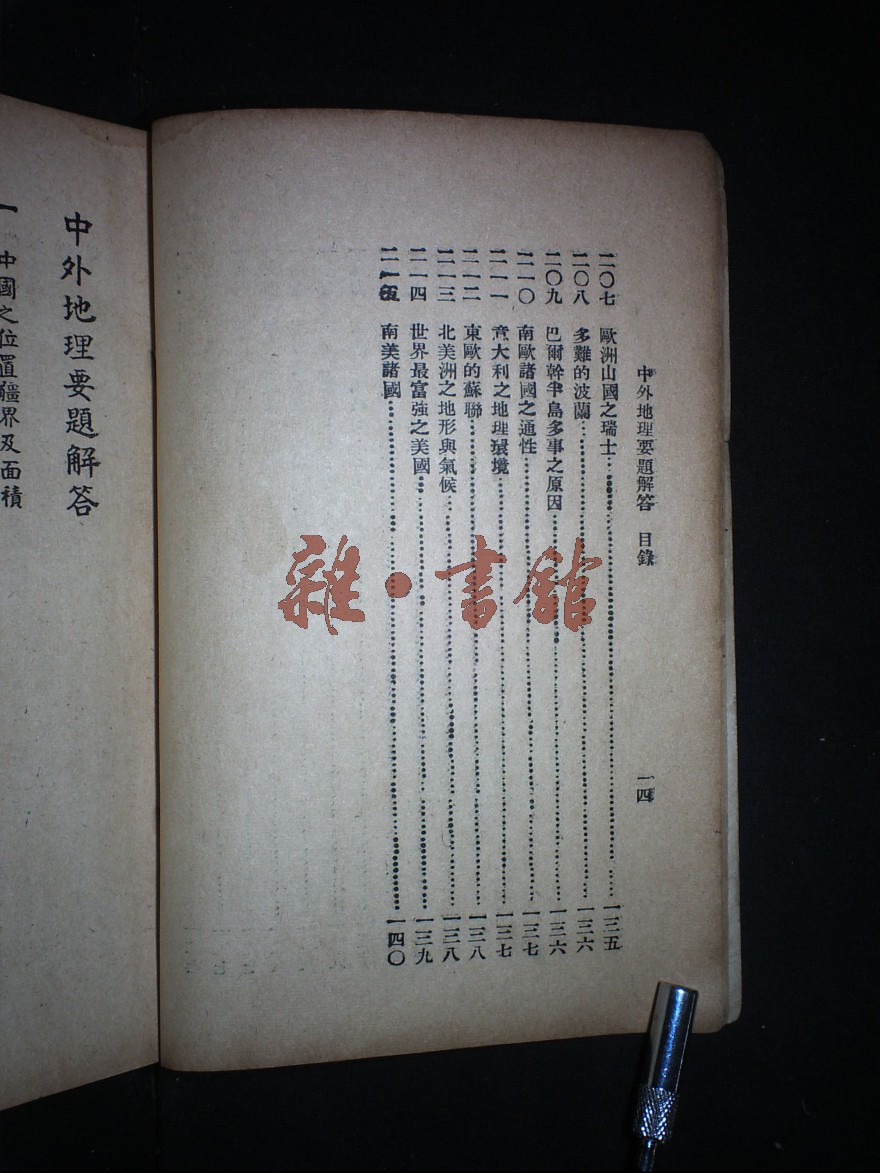 中外地理要題解答 目錄 一四
二〇七 歐洲山國之瑞士 一三五
二〇八 多難的波蘭 一三六
二〇九 巴爾幹半島多事之原因 一三六
二一〇 南歐諸國之通性 一三七
二一一 意大利之地理環境 一三七
二一二 東歐的蘇聯 一三八
二一三 北美洲之地形與氣候 一三八
二一四 世界最富強之美國 一三九
二一五 南美諸國 一四〇
中外地理要題解答
一 中國之位置疆界及面積
雜·書館